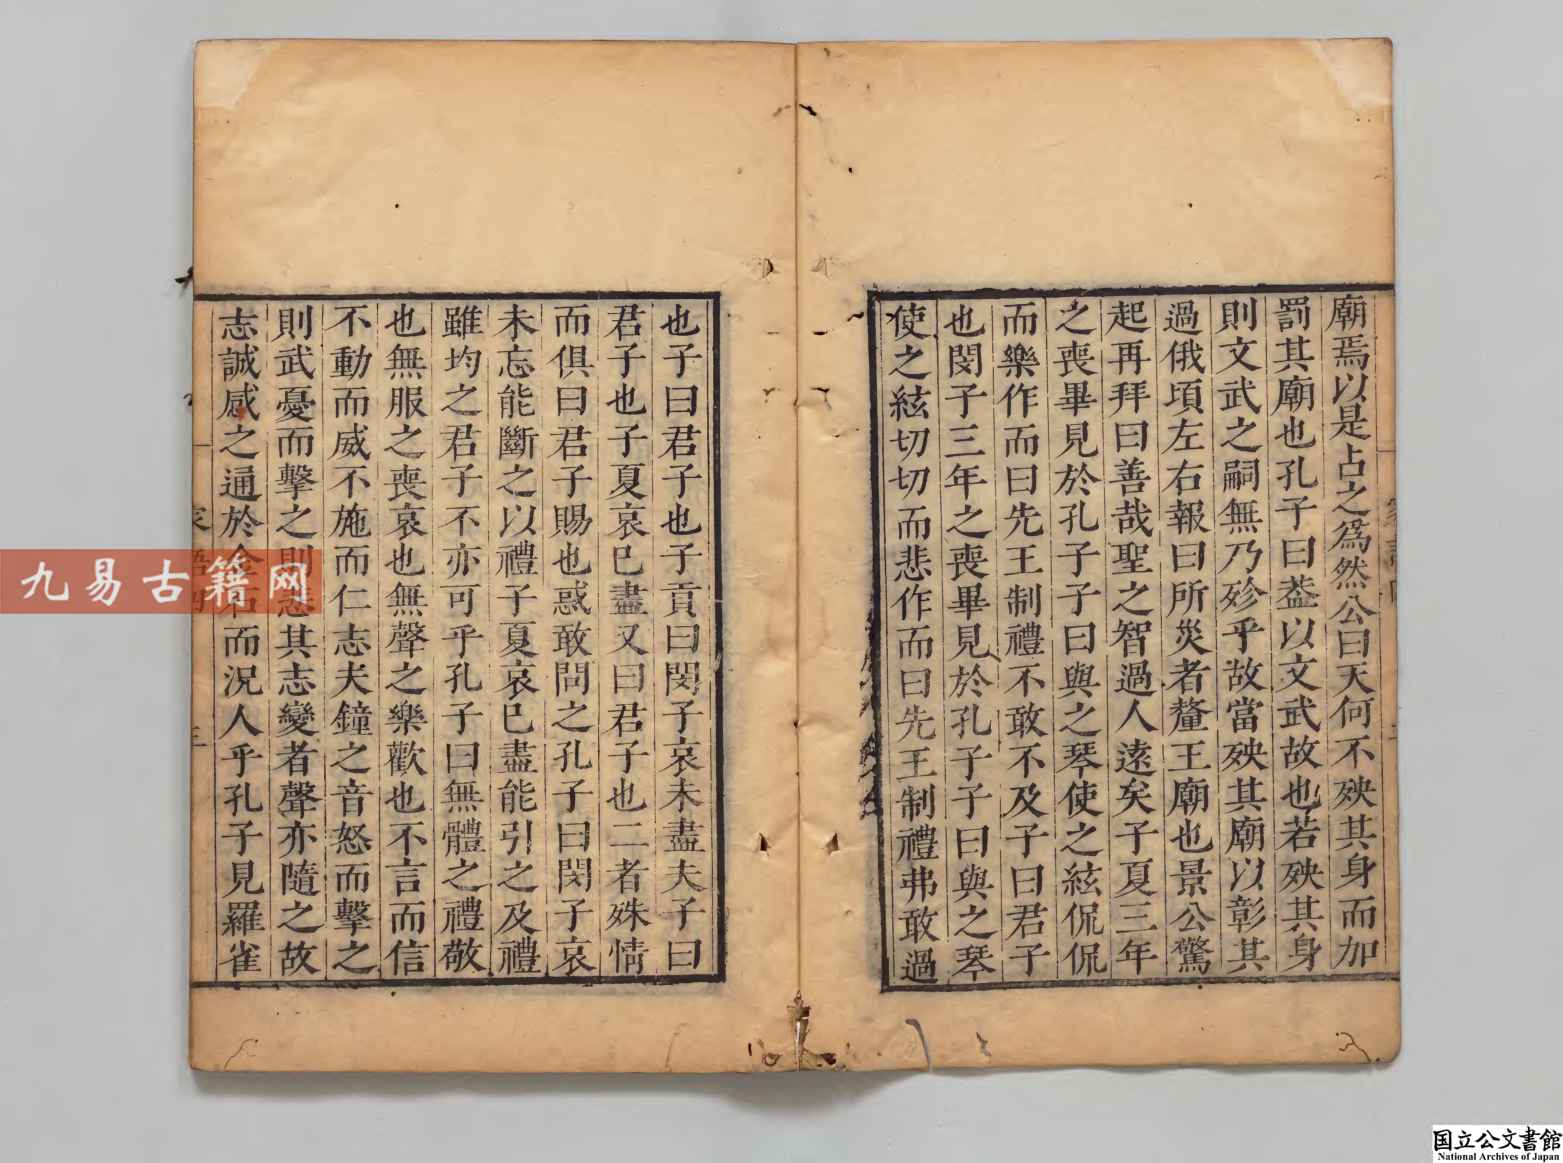 廟焉以是占之爲然公曰天何不殃其身而加
罰其廟也孔子曰葢以文武故也若殃其身
則文武之嗣無乃殄乎故當殃其廟以彰其
過俄頃左右報曰所災者釐王廟也景公驚
起再拜曰善哉聖之智過人遠矣子夏三年
之喪畢見於孔子子曰與之琴使之絃侃侃
而樂作而曰先王制禮不敢不及子曰君子
也閔子三年之喪畢見於孔子子曰與之琴
使之絃切切而悲作而曰先王制禮弗敢過
也子曰君子也子貢曰閔子哀未盡夫子曰
君子也子夏哀已盡又曰君子也二者殊情
而俱曰君子賜也惑敢問之孔子曰閔子哀
未忘能斷之以禮子夏哀已盡能引之及禮
雖均之君子不亦可乎孔子曰無體之禮敬
也無服之喪哀也無聲之樂歡也不言而信
不動而威不施而仁志夫鐘之音怒而擊之
則武憂而擊之則悲其志變者聲亦隨之故
志誠感之通於金石而況人乎孔子見羅雀
九易古籍网
国立公文書館
National Archives of Japan